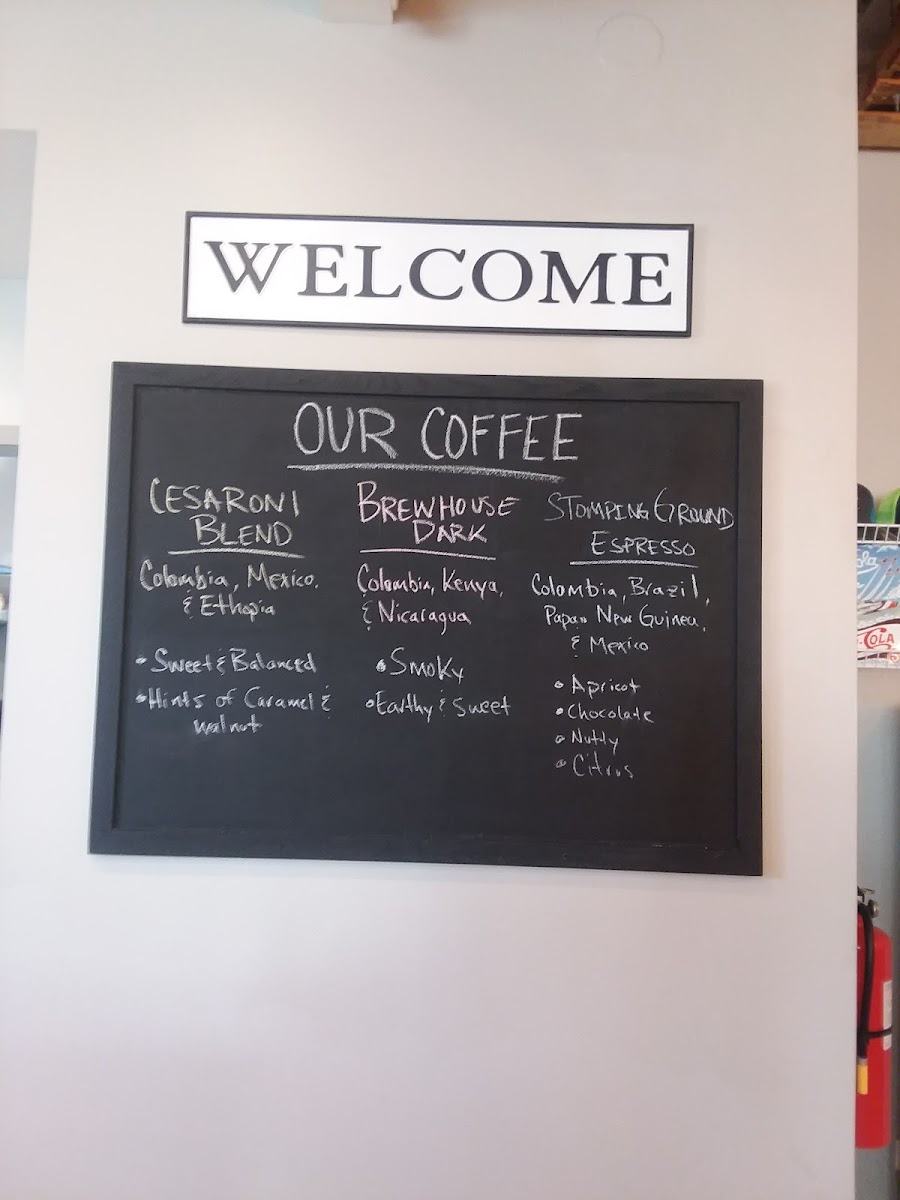 WELCOME
OUR COFFEE
CESARONI
BLEND
Colombia, Mexico,
& Ethopia
• Sweet & Balanced
• Hints of Caramel &
walnut
BREWHOUSE
DARK
Colombia, Kenya,
& Nicaragua
• Smoky
• Earthy & Sweet
STOMPING GROUND
ESPRESSO
Colombia, Brazil,
Papau New Guinea,
& Mexico
• Apricot
• Chocolate
• Nutty
• Citrus
COLA